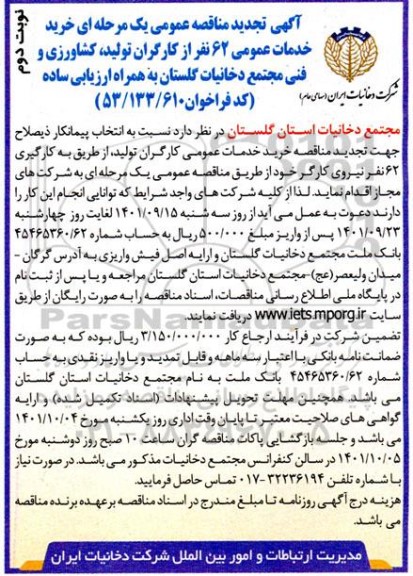 نوبت دوم
آگهی تجدید مناقصه عمومی یک مرحله ای خرید
خدمات عمومی ۶۲ نفر از کارگران تولید، کشاورزی و
فنی مجتمع دخانیات گلستان به همراه ارزیابی ساده
(کد فراخوان ۵۳/۱۳۳/۶۱۰)
شرکت دخانیات ایران (سهامی عام)
مجتمع دخانیات استان گلستان در نظر دارد نسبت به انتخاب پیمانکار ذیصلاح
جهت تجدید مناقصه خرید خدمات عمومی کارگران تولید، از طریق به کارگیری
۶۲ نفر نیروی کارگر خود از طریق مناقصه عمومی یک مرحله ای به شرکت های
مجاز اقدام نماید. لذا از کلیه شرکت های واجد شرایط که توانایی انجام این کار را
دارند دعوت به عمل می آید از روز سه شنبه ۱۴۰۱/۰۹/۱۵ لغایت روز چهارشنبه
۱۴۰۱/۰۹/۲۳ پس از واریز مبلغ ۵۰۰/۰۰۰ ریال به حساب شماره ۴۵۴۶۵۳۶۰/۶۲
بانک ملت مجتمع دخانیات گلستان و ارایه اصل فیش واریزی به آدرس گرگان -
میدان ولیعصر (عج) - مجتمع دخانیات استان گلستان مراجعه و یا پس از ثبت نام
در پایگاه ملی اطلاع رسانی مناقصات، اسناد مناقصه را به صورت رایگان از طریق
سایت www.iets.mporg.ir دریافت نمایند.
تضمین شرکت در فرآیند ارجاع کار ۳/۱۵۰/۰۰۰/۰۰۰ ریال بوده که به صورت
ضمانت نامه بانکی با اعتبار سه ماهه و قابل تمدید و یا واریز نقدی به حساب
شماره ۴۵۴۶۵۳۶۰/۶۲ بانک ملت به نام مجتمع دخانیات استان گلستان
می باشد. همچنین مهلت تحویل پیشنهادات (اسناد تکمیل شده) و ارایه
گواهی های صلاحیت معتبر تا پایان وقت اداری روز یکشنبه مورخ ۱۴۰۱/۱۰/۰۴
می باشد و جلسه بازگشایی پاکات مناقصه گران ساعت ۱۰ صبح روز دوشنبه مورخ
۱۴۰۱/۱۰/۰۵ در سالن کنفرانس مجتمع دخانیات مذکور می باشد. در صورت نیاز
با شماره تلفن ۳۲۲۳۶۱۹۴-۰۱۷ تماس حاصل فرمایید.
هزینه درج آگهی روزنامه تا مبلغ مندرج در اسناد مناقصه بر عهده برنده مناقصه
می باشد.
مدیریت ارتباطات و امور بین الملل شرکت دخانیات ایران